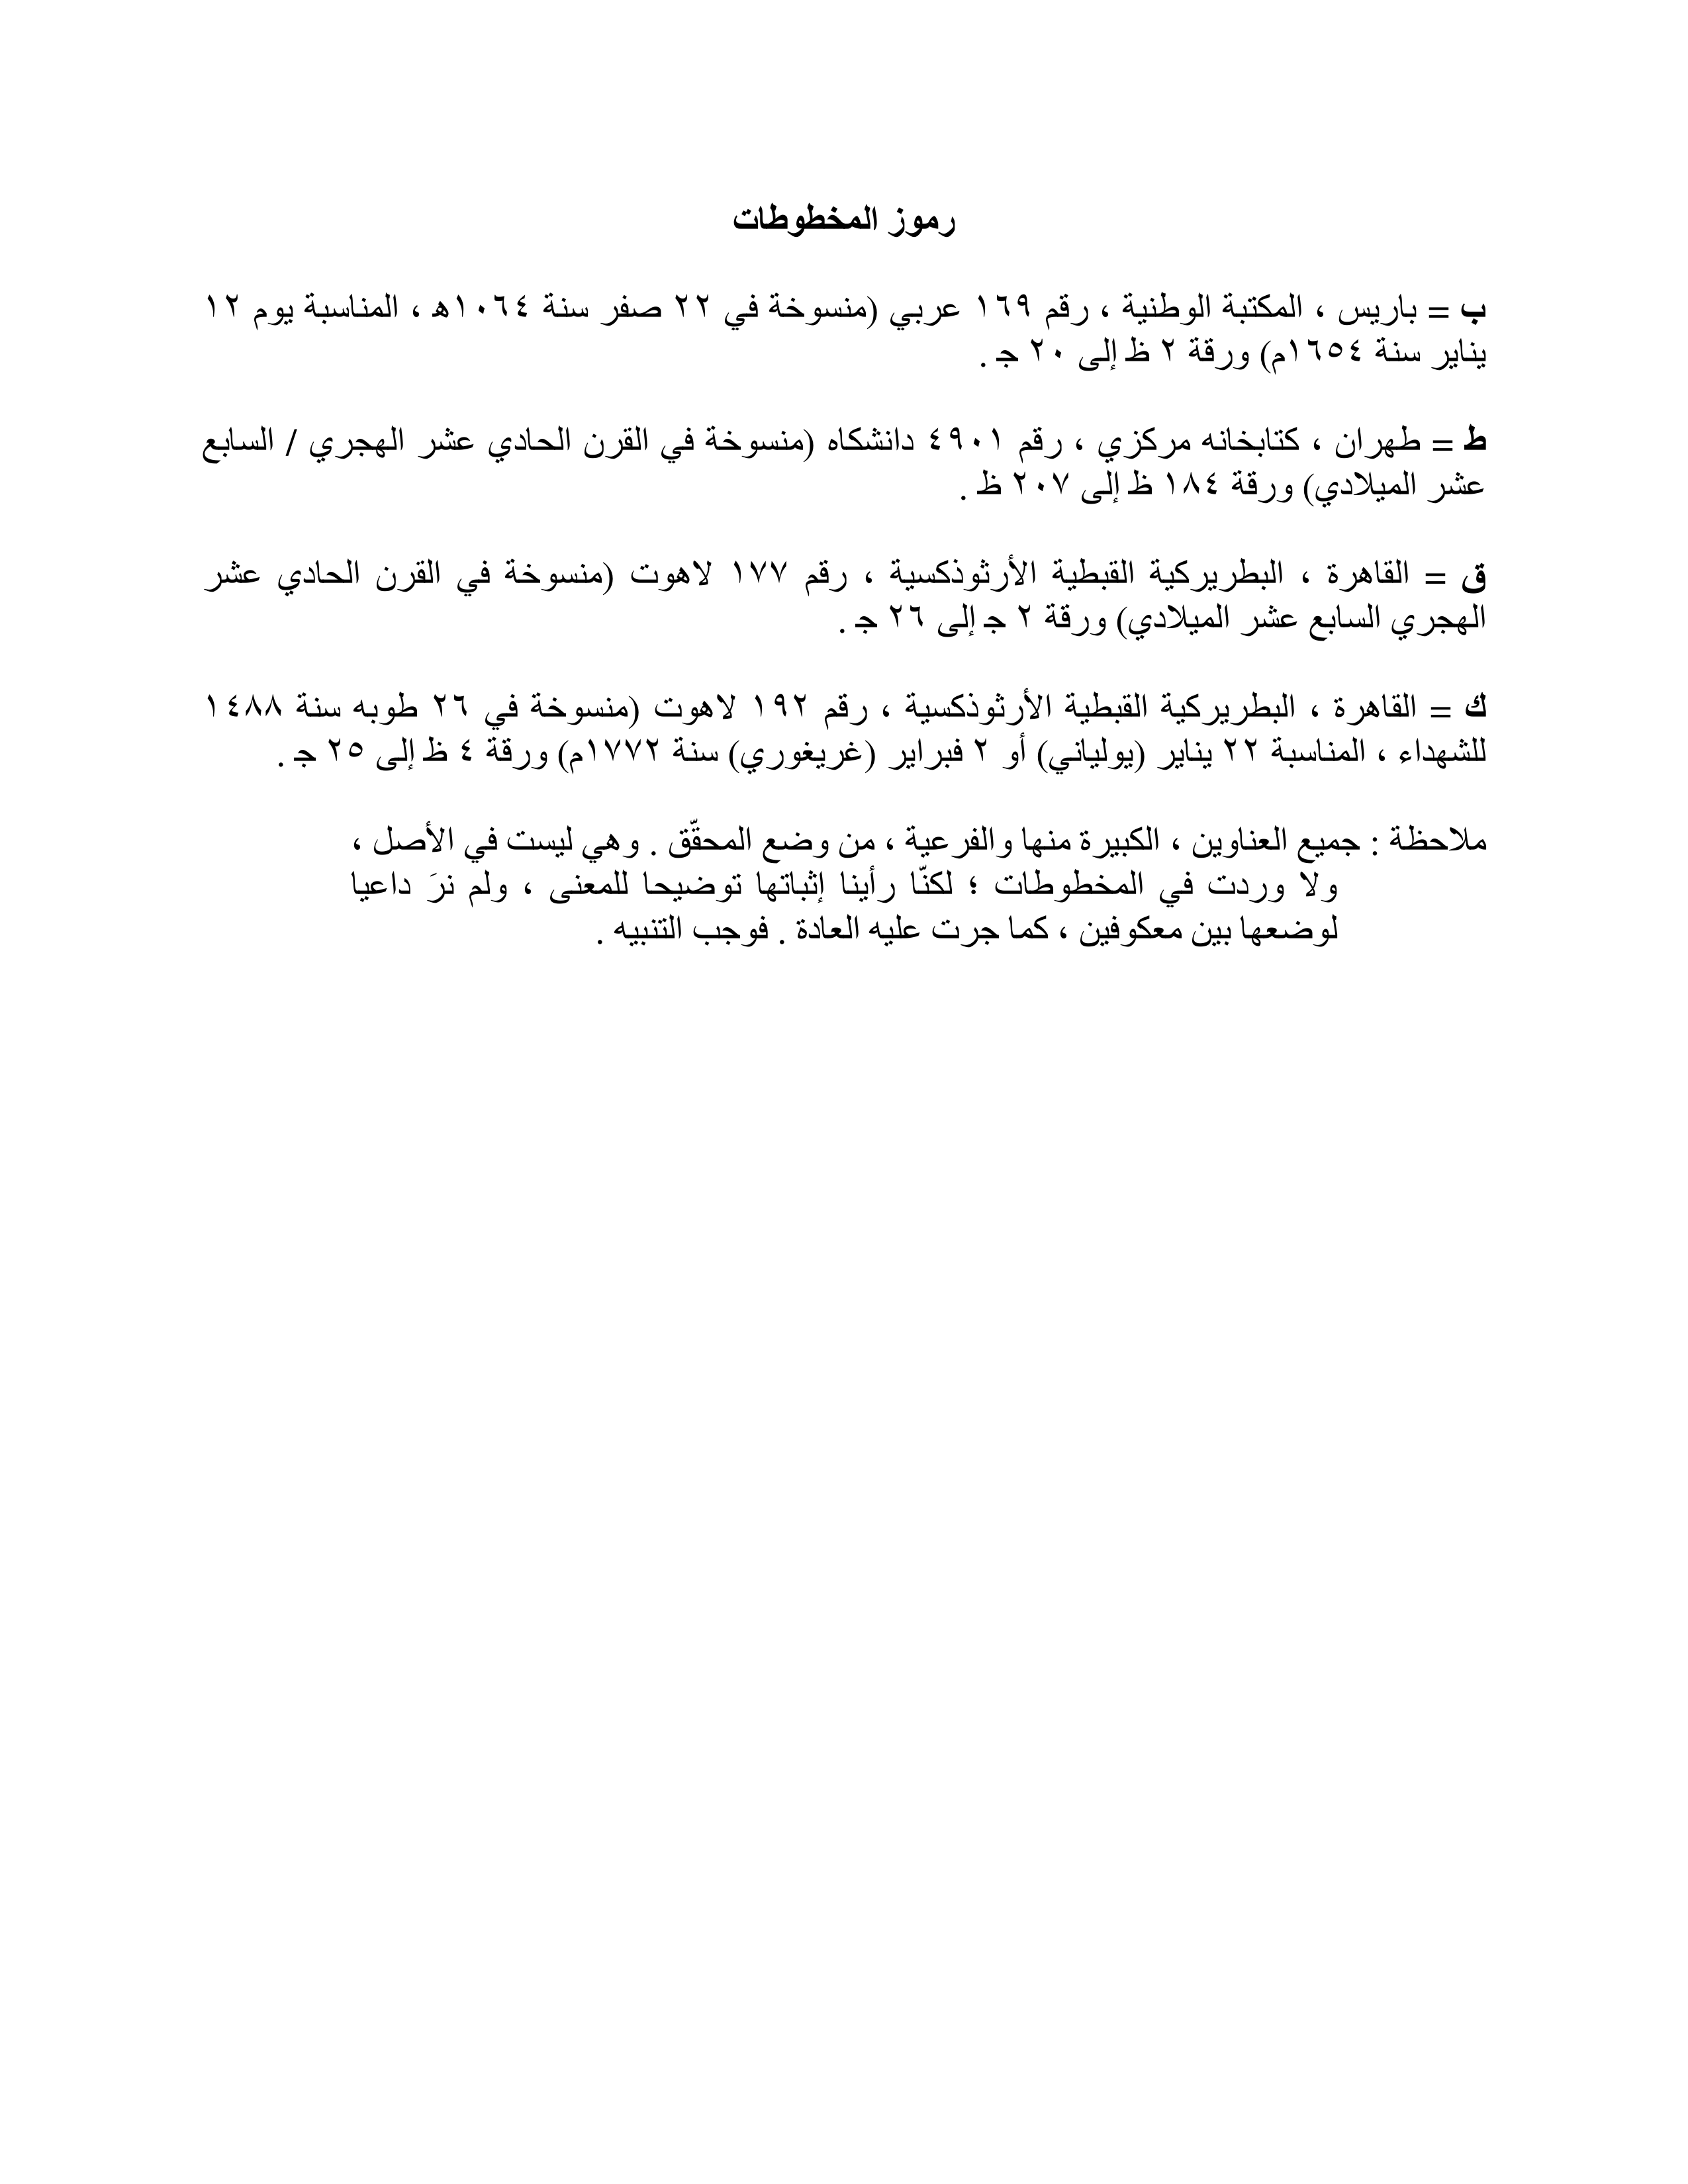 رموز المخطوطات
ب = باريس ، المكتبة الوطنية ، رقم ١٦٩ عربي (منسوخة في ٢٢ صفر سنة ١٠٦٤هـ ، المناسبة يوم ١٢
يناير سنة ١٦٥٤م) ورقة ٢ ظ إلى ٢٠ جـ .
ط = طهران ، كتابخانه مركزي ، رقم ٤٩٠١ دانشكاه (منسوخة في القرن الحادي عشر الهجري / السابع
عشر الميلادي) ورقة ١٨٤ ظ إلى ٢٠٧ ظ .
ق = القاهرة ، البطريركية القبطية الأرثوذكسية ، رقم ١٧٧ لاهوت (منسوخة في القرن الحادي عشر
الهجري السابع عشر الميلادي) ورقة ٢ جـ إلى ٢٦ جـ .
ك = القاهرة ، البطريركية القبطية الأرثوذكسية ، رقم ١٩٢ لاهوت (منسوخة في ٢٦ طوبه سنة ١٤٨٨
للشهداء ، المناسبة ٢٢ يناير (يولياني) أو ٢ فبراير (غريغوري) سنة ١٧٧٢م) ورقة ٤ ظ إلى ٢٥ جـ .
ملاحظة : جميع العناوين ، الكبيرة منها والفرعية ، من وضع المحقّق . وهي ليست في الأصل ،
ولا وردت في المخطوطات ؛ لكنّا رأينا إثباتها توضيحا للمعنى ، ولم نرَ داعيا
لوضعها بين معكوفين ، كما جرت عليه العادة . فوجب التنبيه .